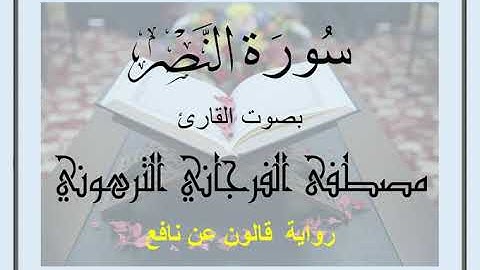 سُورَة النَّصْر
بصوت القارئ
مصطفى الفرجاني الترهوني
رواية قالون عن نافع